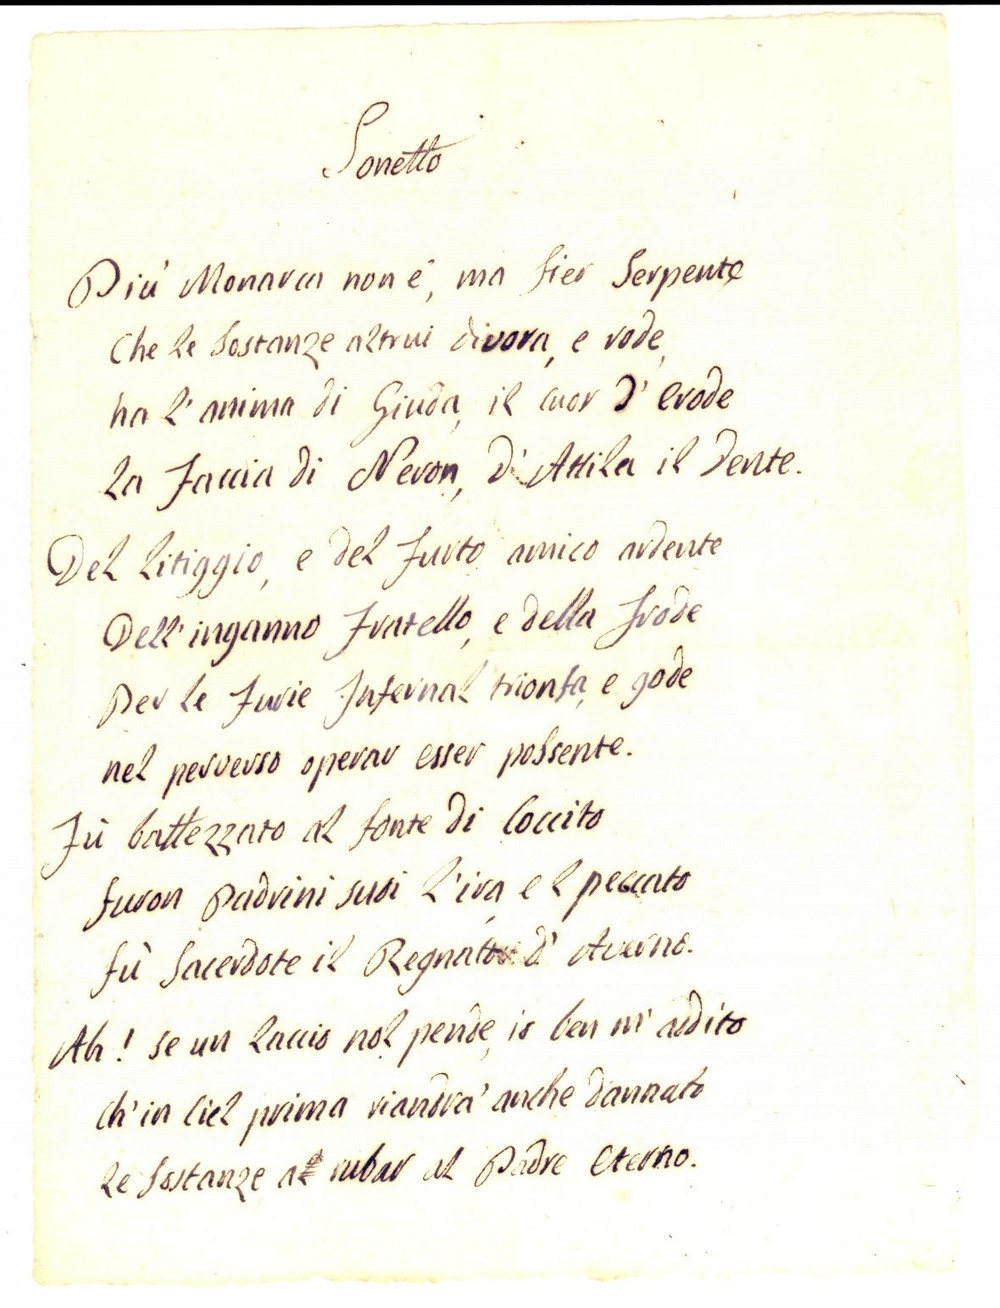 Sonetto
Più Monarca non è, ma fier Serpente
Che le Sostanze altrui divora, e rode,
ha l'anima di Giuda, il cuor d'Erode
la Faccia di Neron, d'Attila il Dente.
Del litiggio, e del Furto amico ardente
Dell'inganno Fratello, e della Frode
Per le Furie Infernal trionfa, e gode
nel perverso operar esser possente.
Fù battezzato al fonte di Coccito
furon Padrini suoi l'ira, e l peccato
fù Sacerdote il d'Averno.
Ah! se un laccio nol pende, io ben m'addito
Ch'in Ciel prima riandrà anche dannato
le Sostanze a rubar al Padre Eterno.